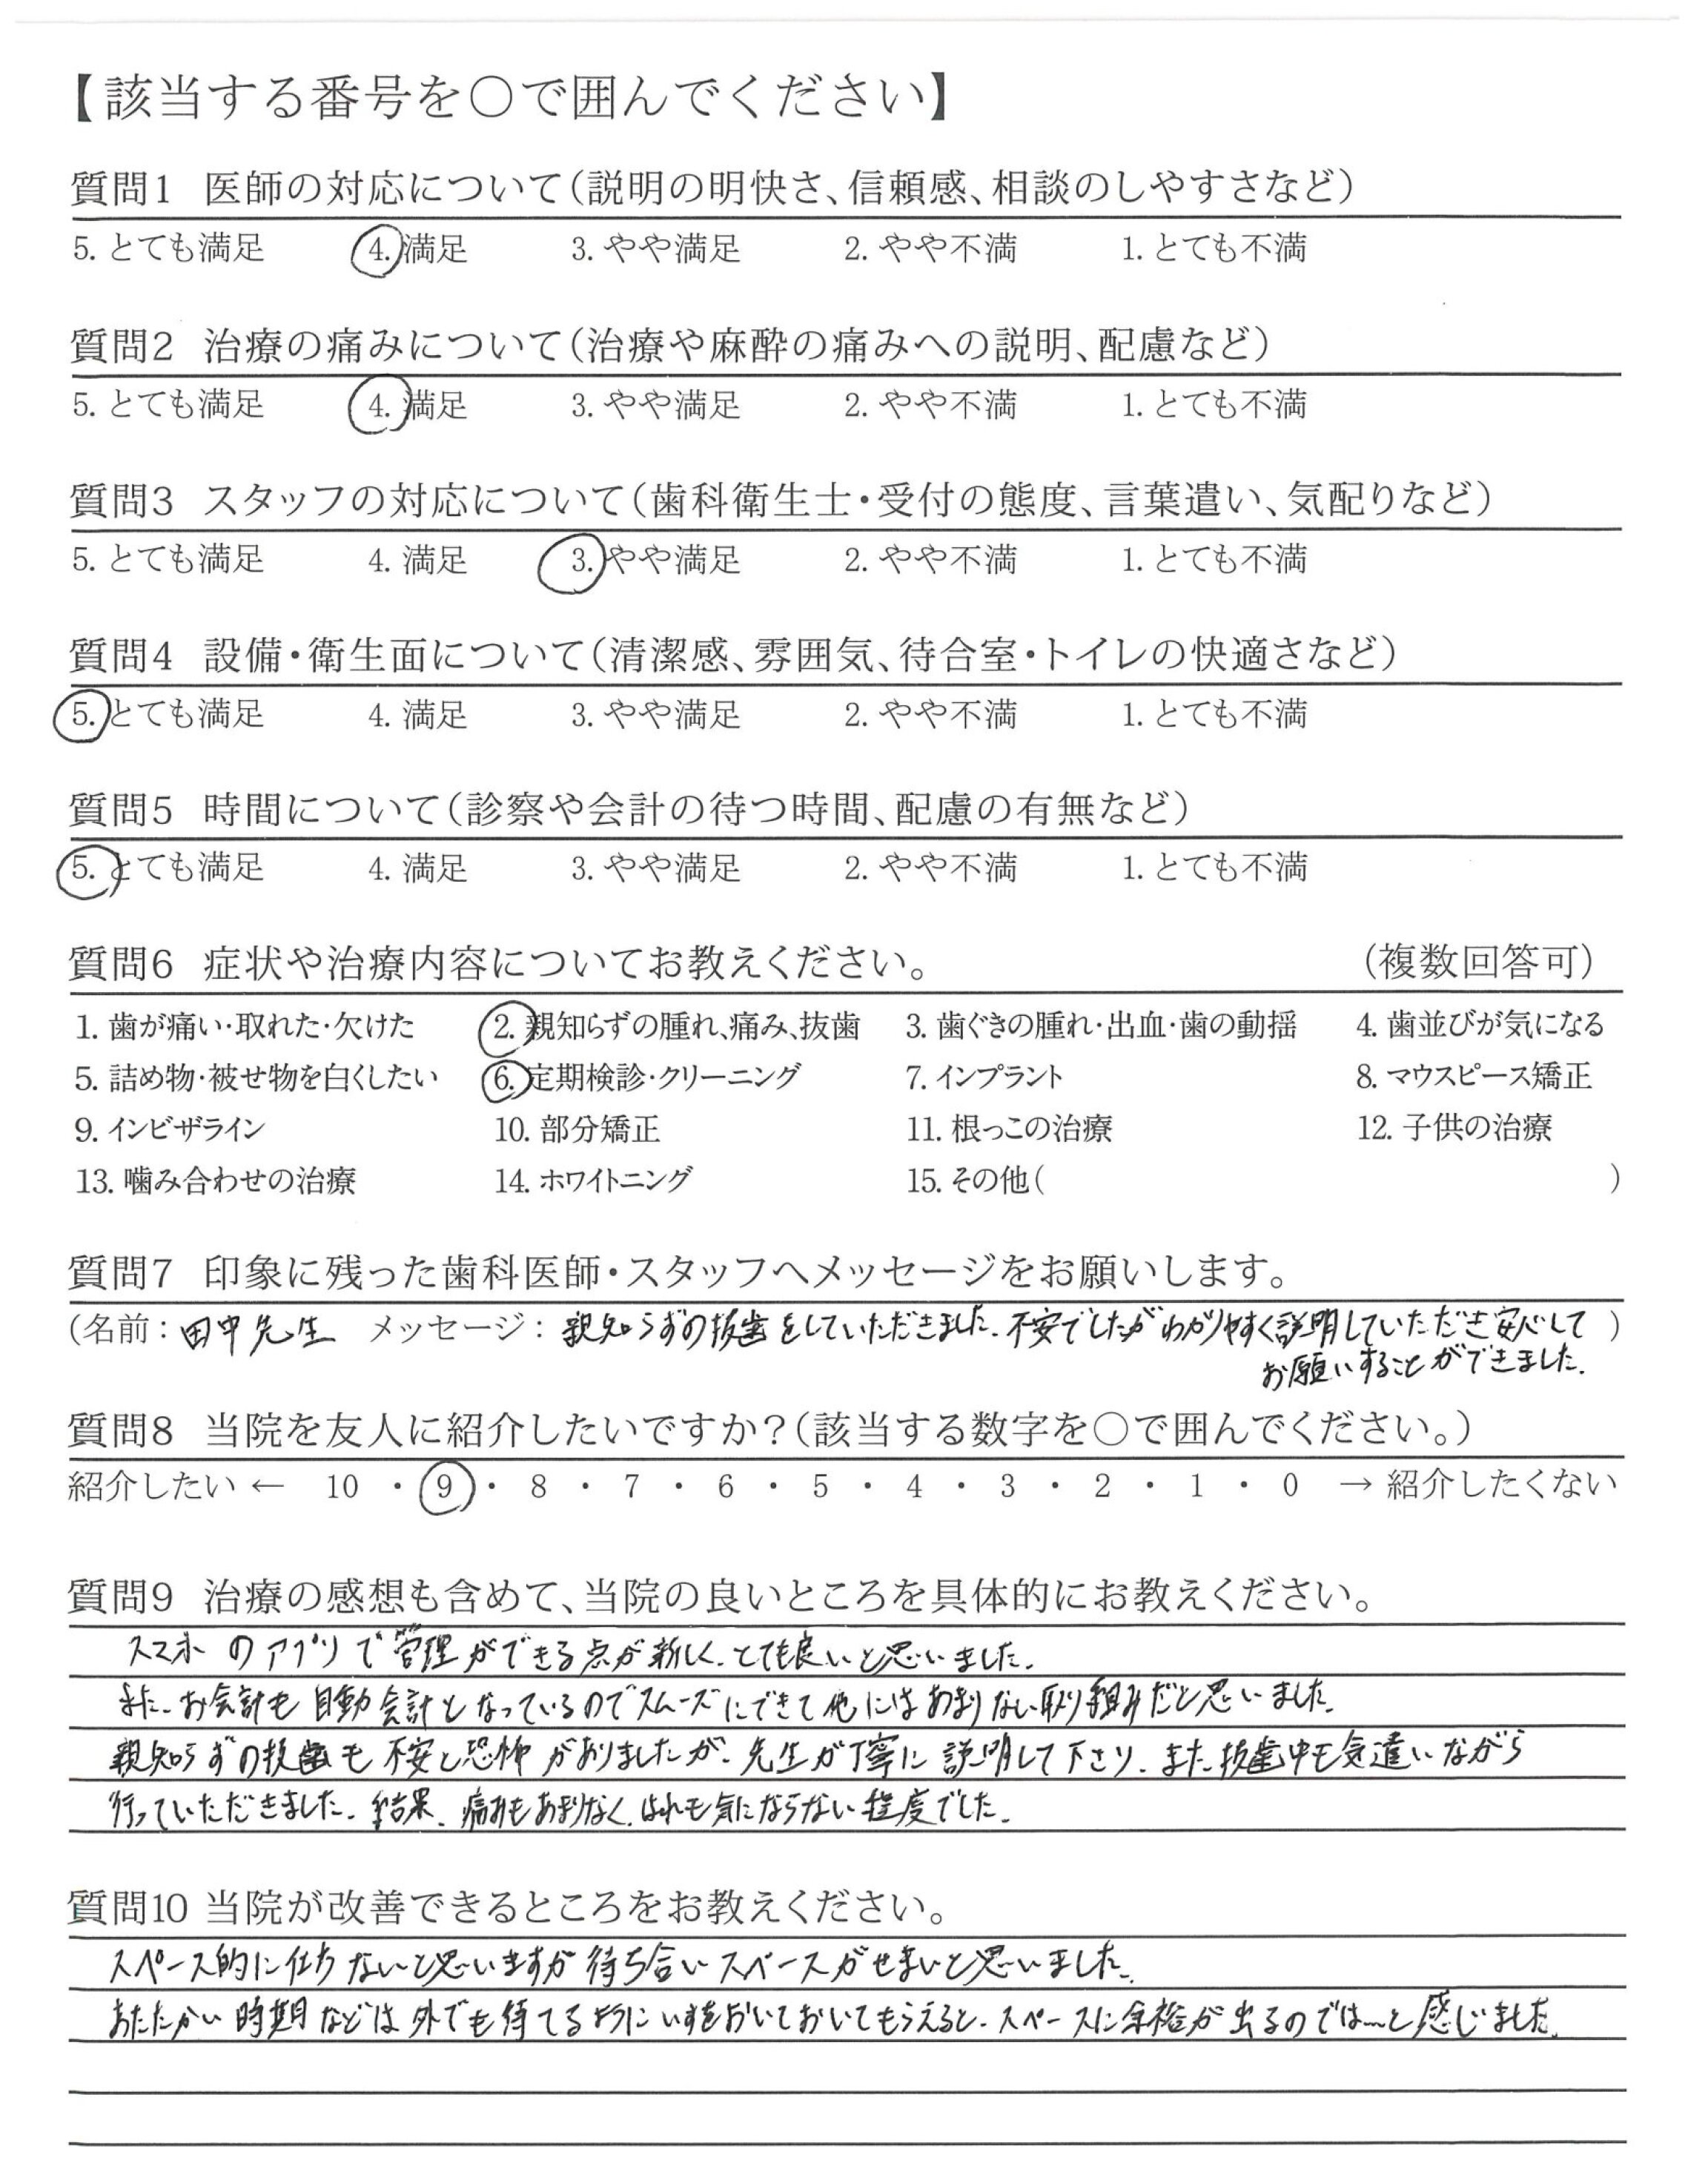 【該当する番号を○で囲んでください】
質問1 医師の対応について(説明の明快さ、信頼感、相談のしやすさなど)
5. とても満足 4. 満足 3. やや満足 2. やや不満 1. とても不満
質問2 治療の痛みについて(治療や麻酔の痛みへの説明、配慮など)
5. とても満足 4. 満足 3. やや満足 2. やや不満 1. とても不満
質問3 スタッフの対応について(歯科衛生士・受付の態度、言葉遣い、気配りなど)
5. とても満足 4. 満足 3. やや満足 2. やや不満 1. とても不満
質問4 設備・衛生面について(清潔感、雰囲気、待合室・トイレの快適さなど)
5. とても満足 4. 満足 3. やや満足 2. やや不満 1. とても不満
質問5 時間について(診察や会計の待つ時間、配慮の有無など)
5. とても満足 4. 満足 3. やや満足 2. やや不満 1. とても不満
質問6 症状や治療内容についてお教えください。 (複数回答可)
1. 歯が痛い・取れた・欠けた 2. 親知らずの腫れ、痛み、抜歯 3. 歯ぐきの腫れ・出血・歯の動揺 4. 歯並びが気になる
5. 詰め物・被せ物を白くしたい 6. 定期検診・クリーニング 7. インプラント 8. マウスピース矯正
9. インビザライン 10. 部分矯正 11. 根っこの治療 12. 子供の治療
13. 噛み合わせの治療 14. ホワイトニング 15. その他( )
質問7 印象に残った歯科医師・スタッフへメッセージをお願いします。
(名前：田中先生 メッセージ：親知らずの抜歯をしていただきました。不安でしたがわかりやすく説明していただき安心して )
お願いすることができました。
質問8 当院を友人に紹介したいですか?(該当する数字を○で囲んでください。)
紹介したい ← 10 ・ 9 ・ 8 ・ 7 ・ 6 ・ 5 ・ 4 ・ 3 ・ 2 ・ 1 ・ 0 → 紹介したくない
質問9 治療の感想も含めて、当院の良いところを具体的にお教えください。
スマホのアプリで管理ができる点が新しく、とても良いと思いました。
また、お会計も自動会計となっているのでスムーズにできて他にはあまりない取り組みだと思いました。
親知らずの抜歯も不安と恐怖がありましたが、先生が丁寧に説明して下さり、また抜歯中も気遣いながら
行っていただきました。結果、痛みもあまりなく、はれも気にならない程度でした。
質問10 当院が改善できるところをお教えください。
スペース的に仕方ないと思いますが待ち合いスペースがせまいと思いました。
あたたかい時期などは外でも待てるようにいすをおいておいてもらえると、スペースに余裕が出るのでは…と感じました。